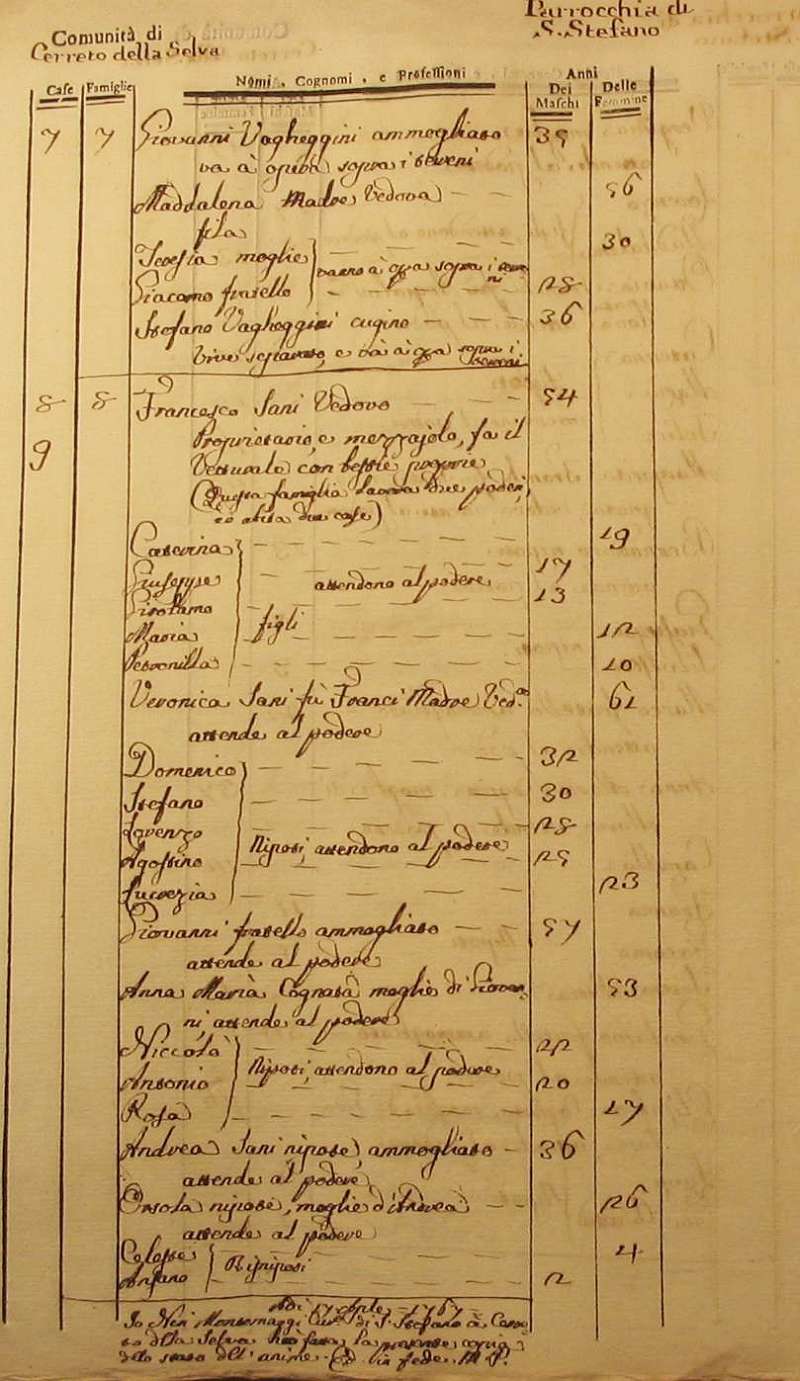 Comunità di
Cerreto della Selva
Parrocchia di
S. Stefano
Case Famiglie Nomi, Cognomi, e Professioni Anni
Dei Maschi Delle Femmine
7 7 Giovanni Vagheggini ammogliato 35
va à opera sopra i beveni
Maddalena Madre Vedova 56
fila
moglie 30
Giacomo fratello vanno à opra sopra i 28
Stefano Vagheggini cugino 36
vive separato, e và à opra sopra i
8 8 Francesco Sani Vedovo 54
9 Proprietario, e mezzajolo, fa il
Vetturale con bestie proprie
(Questa famiglia lavora due poderi,
ed abita due case)
Caterina 19
Giuseppe attendono al podere 17
Girolamo 13
Maria figli 12
Petronilla 10
Veronica Sani fù Franc. Madre Ved.ª 62
attende al podere
Domenico 32
Stefano 30
Lorenzo 28
Agostino Nipoti, attendono al podere 25
Lucrezia 23
Giovanni fratello ammogliato 57
attende al podere
Anna Maria Cognata moglie di Giovan
ni, attende al podere 53
Niccola 22
Antonio Nipoti, attendono al podere 20
Rosa 17
Andrea Sani nipote, ammogliato 36
attende al podere
Orsola nipote, moglie d'Andrea 26
attende al podere
4
Nipnipoti 2
1767
Io di S. Stefano à Cerre
to della Selva hò fatto la presente copia
dello stato dell'anime. in fede. M. P.